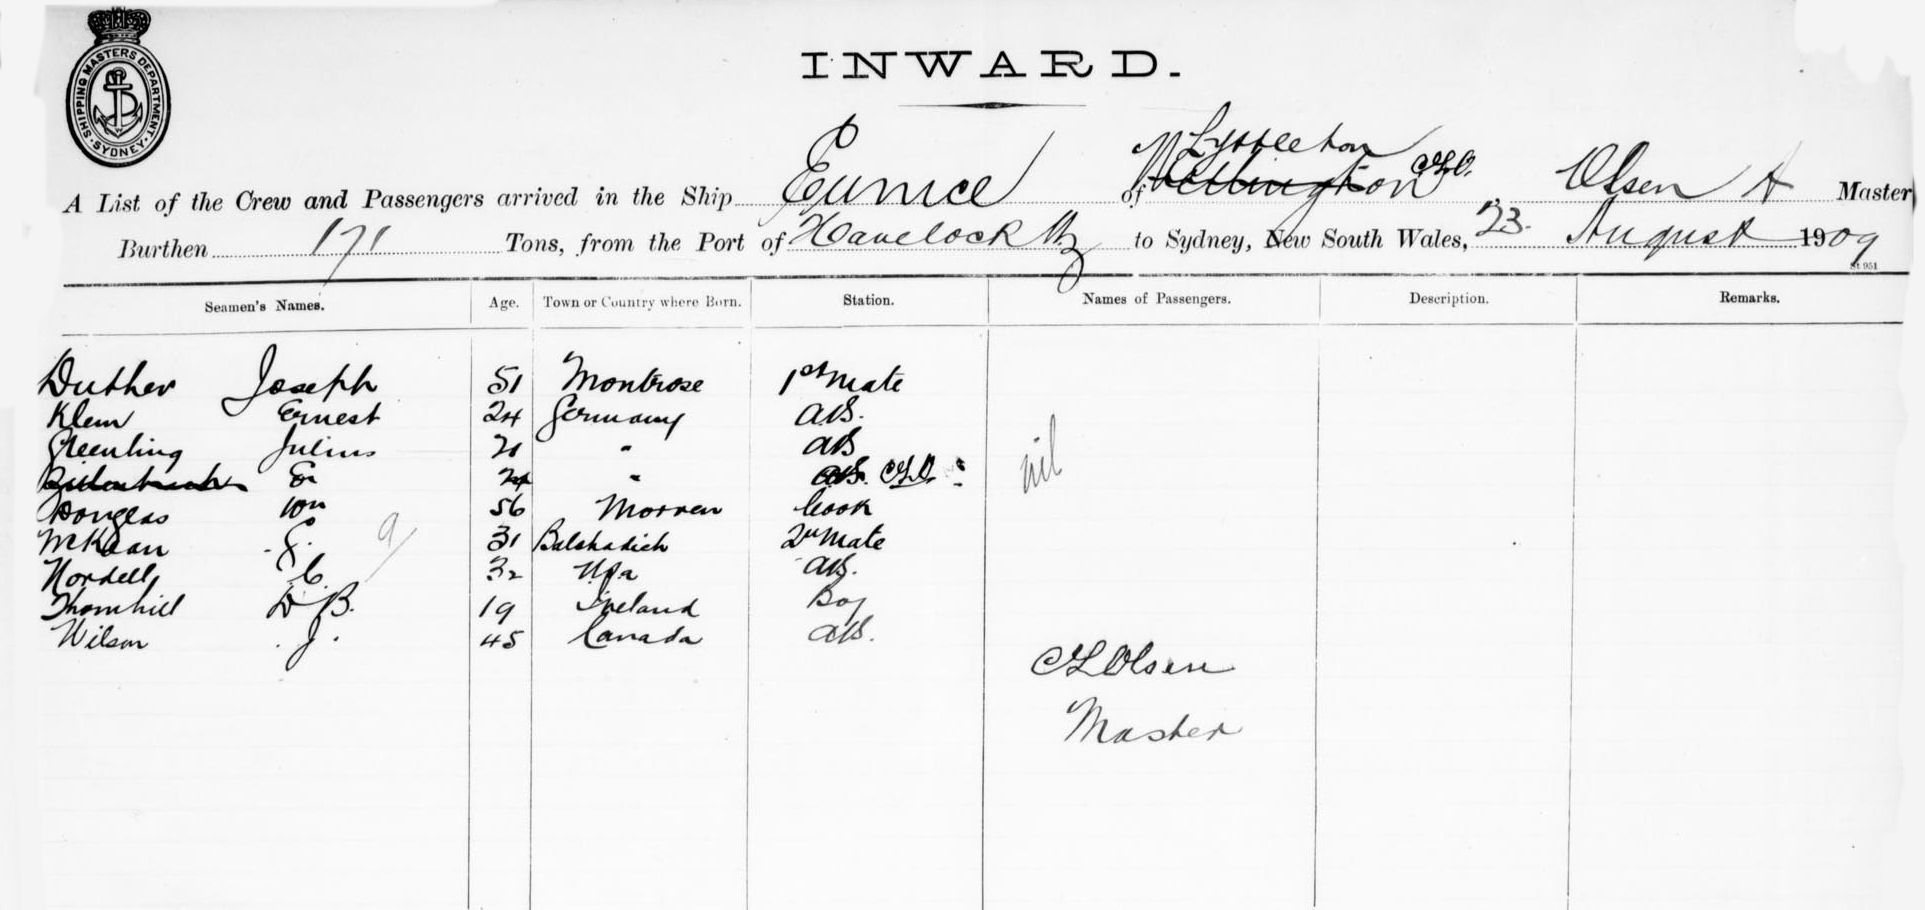 SHIPPING MASTERS DEPARTMENT. SYDNEY.
INWARD.
Lyttleton
A List of the Crew and Passengers arrived in the Ship Eunice of Wellington Olsen A Master
Burthen 171 Tons, from the Port of Havelock Nz to Sydney, New South Wales, 23 August 1909
St 951
Seamen's Names. Age. Town or Country where Born. Station. Names of Passengers. Description. Remarks.
Duther Joseph 51 Montrose 1st Mate
Klein Ernest 24 Germany AB.
Greenling Julius 21 " AB
E 24 " AB.
nil
Douglas Wm 56 Morven Cook
McKean J. 31 2nd Mate
9/
Nordell, C. 32 AB.
Thornhill D B. 19 Ireland Boy
Wilson J. 45 Canada AB.
Olsen
Master